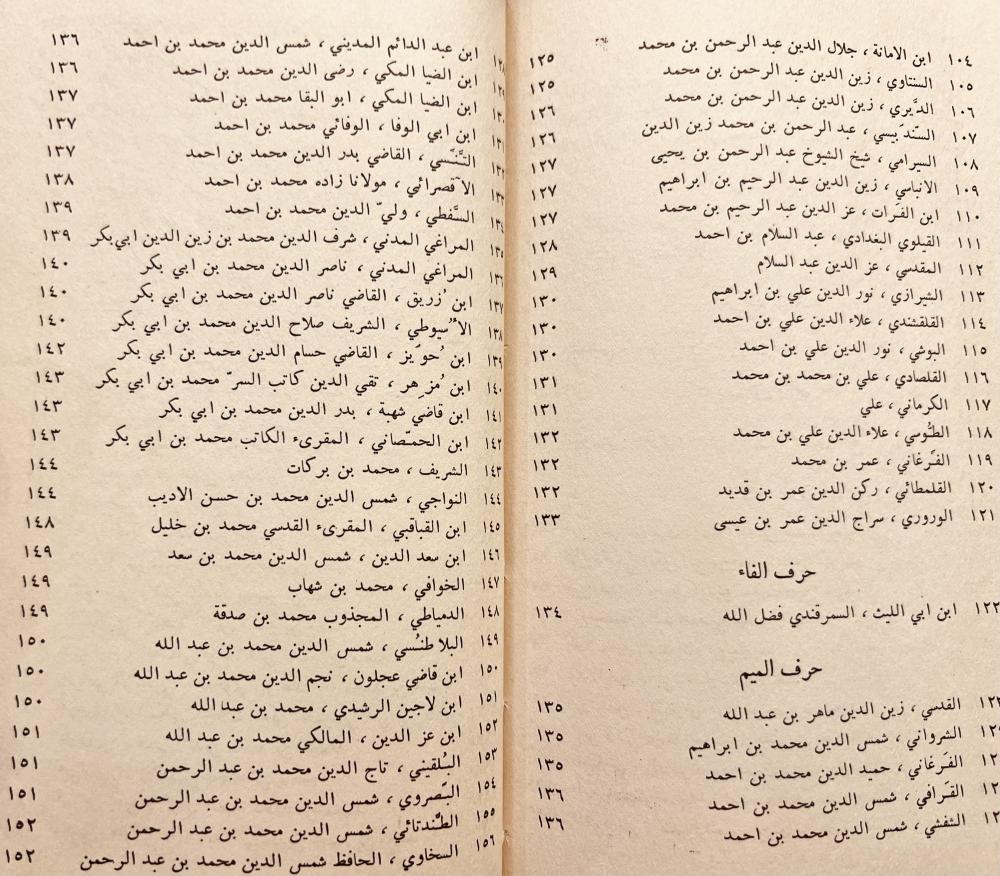 ١٠٤ ابن الامانة ، جلال الدين عبد الرحمن بن محمد ١٢٥
١٠٥ السنتاوي ، زين الدين عبد الرحمن بن محمد ١٢٥
١٠٦ الدَّيري ، زين الدين عبد الرحمن بن محمد ١٢٦
١٠٧ السّندَبيسي ، عبد الرحمن بن محمد زين الدين ١٢٦
١٠٨ السيرامي ، شيخ الشيوخ عبد الرحمن بن يحيى ١٢٧
١٠٩ الانباسي ، زين الدين عبد الرحيم بن ابراهيم ١٢٧
١١٠ ابن الفَرات ، عز الدين عبد الرحيم بن محمد ١٢٧
١١١ القيلوي البغدادي ، عبد السلام بن احمد ١٢٨
١١٢ المقدسي ، عز الدين عبد السلام ١٢٩
١١٣ الشيرازي ، نور الدين علي بن ابراهيم ١٣٠
١١٤ القلقشندي ، علاء الدين علي بن احمد ١٣٠
١١٥ البوشي ، نور الدين علي بن احمد ١٣٠
١١٦ القلصادي ، علي بن محمد بن محمد ١٣١
١١٧ الكرماني ، علي ١٣١
١١٨ الطُّوسي ، علاء الدين علي بن محمد ١٣٢
١١٩ الفَرغاني ، عمر بن محمد ١٣٢
١٢٠ القلمطائي ، ركن الدين عمر بن قديد ١٣٢
١٢١ الوروري ، سراج الدين عمر بن عيسى ١٣٣
حرف الفاء
١٢٢ ابن ابي الليث ، السمرقندي فضل الله ١٣٤
حرف الميم
القدسي ، زين الدين ماهر بن عبد الله ١٣٥
الشرواني ، شمس الدين محمد بن ابراهيم ١٣٥
الفَرغاني ، حميد الدين محمد بن احمد ١٣٥
القَرافي ، شمس الدين محمد بن احمد ١٣٦
شمس الدين محمد بن احمد ١٣٦
ابن عبد الدائم المديني ، شمس الدين محمد بن احمد ١٣٦
ابن الضيا المكي ، رضى الدين محمد بن احمد ١٣٦
ابن الضيا المكي ، ابو البقا محمد بن احمد ١٣٧
ابن ابي الوفا ، الوفائي محمد بن احمد ١٣٧
التَّنَسي ، القاضي بدر الدين محمد بن احمد ١٣٧
الآقصرائي ، مولانا زاده محمد بن احمد ١٣٨
السَّفطي ، وليّ الدين محمد بن احمد ١٣٩
المراغي المدني ، شرف الدين محمد بن زين الدين ابي بكر ١٣٩
المراغي المدني ، ناصر الدين محمد بن ابي بكر ١٤٠
ابن زُريق ، القاضي ناصر الدين محمد بن ابي بكر ١٤٠
١٣٨ الأُسيوطي ، الشريف صلاح الدين محمد بن ابي بكر ١٤٠
١٣٩ ابن حُوَيز ، القاضي حسام الدين محمد بن ابي بكر ١٤٢
١٤٠ ابن مُزهِر ، تقي الدين كاتب السرّ محمد بن ابي بكر ١٤٣
١٤١ ابن قاضي شهبة ، بدر الدين محمد بن ابي بكر ١٤٣
١٤٢ ابن الحمّصاني ، المقرىء الكاتب محمد بن ابي بكر ١٤٣
١٤٣ الشريف ، محمد بن بركات ١٤٤
١٤٤ النواجي ، شمس الدين محمد بن حسن الاديب ١٤٤
١٤٥ ابن القباقبي ، المقرىء القدسي محمد بن خليل ١٤٨
١٤٦ ابن سعد الدين ، شمس الدين محمد بن سعد ١٤٩
١٤٧ الخوافي ، محمد بن شهاب ١٤٩
١٤٨ الدمياطي ، المجذوب محمد بن صدقة ١٤٩
١٤٩ البلاطنُسي ، شمس الدين محمد بن عبد الله ١٥٠
١٥٠ ابن قاضي عجلون ، نجم الدين محمد بن عبد الله ١٥٠
١٥١ ابن لاجين الرشيدي ، محمد بن عبد الله ١٥٠
١٥٢ ابن عز الدين ، المالكي محمد بن عبد الله ١٥١
١٥٣ البُلقيني ، تاج الدين محمد بن عبد الرحمن ١٥١
١٥٤ البَصروي ، شمس الدين محمد بن عبد الرحمن ١٥١
١٥٥ الطَّندتائي ، شمس الدين محمد بن عبد الرحمن ١٥٢
١٥٦ السخاوي ، الحافظ شمس الدين محمد بن عبد الرحمن ١٥٢